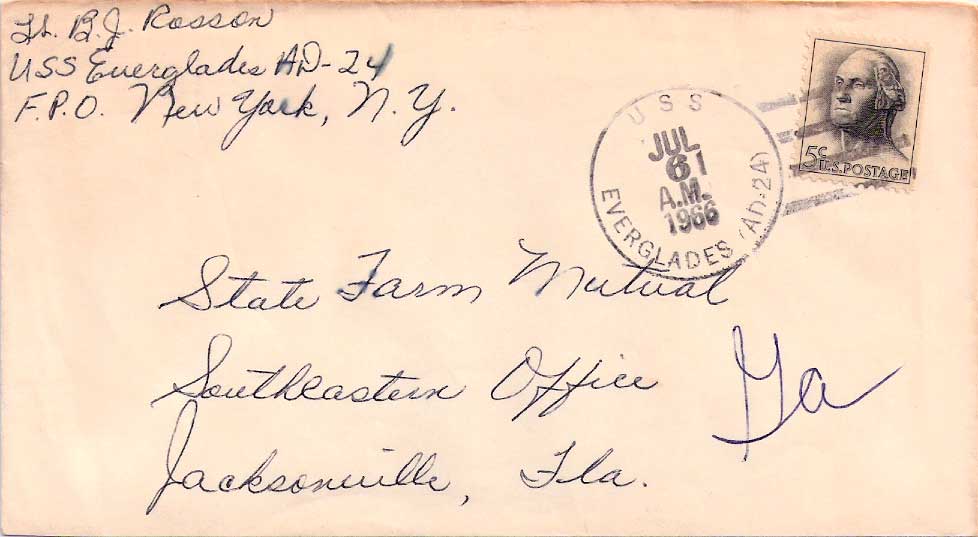 Lt. B.J. Rosson
USS Everglades AD-24
F.P.O. New York, N.Y.
USS
JUL
61
A.M.
1966
EVERGLADES (AD-24)
5c
U.S. POSTAGE
State Farm Mutual
Southeastern Office
Jacksonville, Fla.
Ga